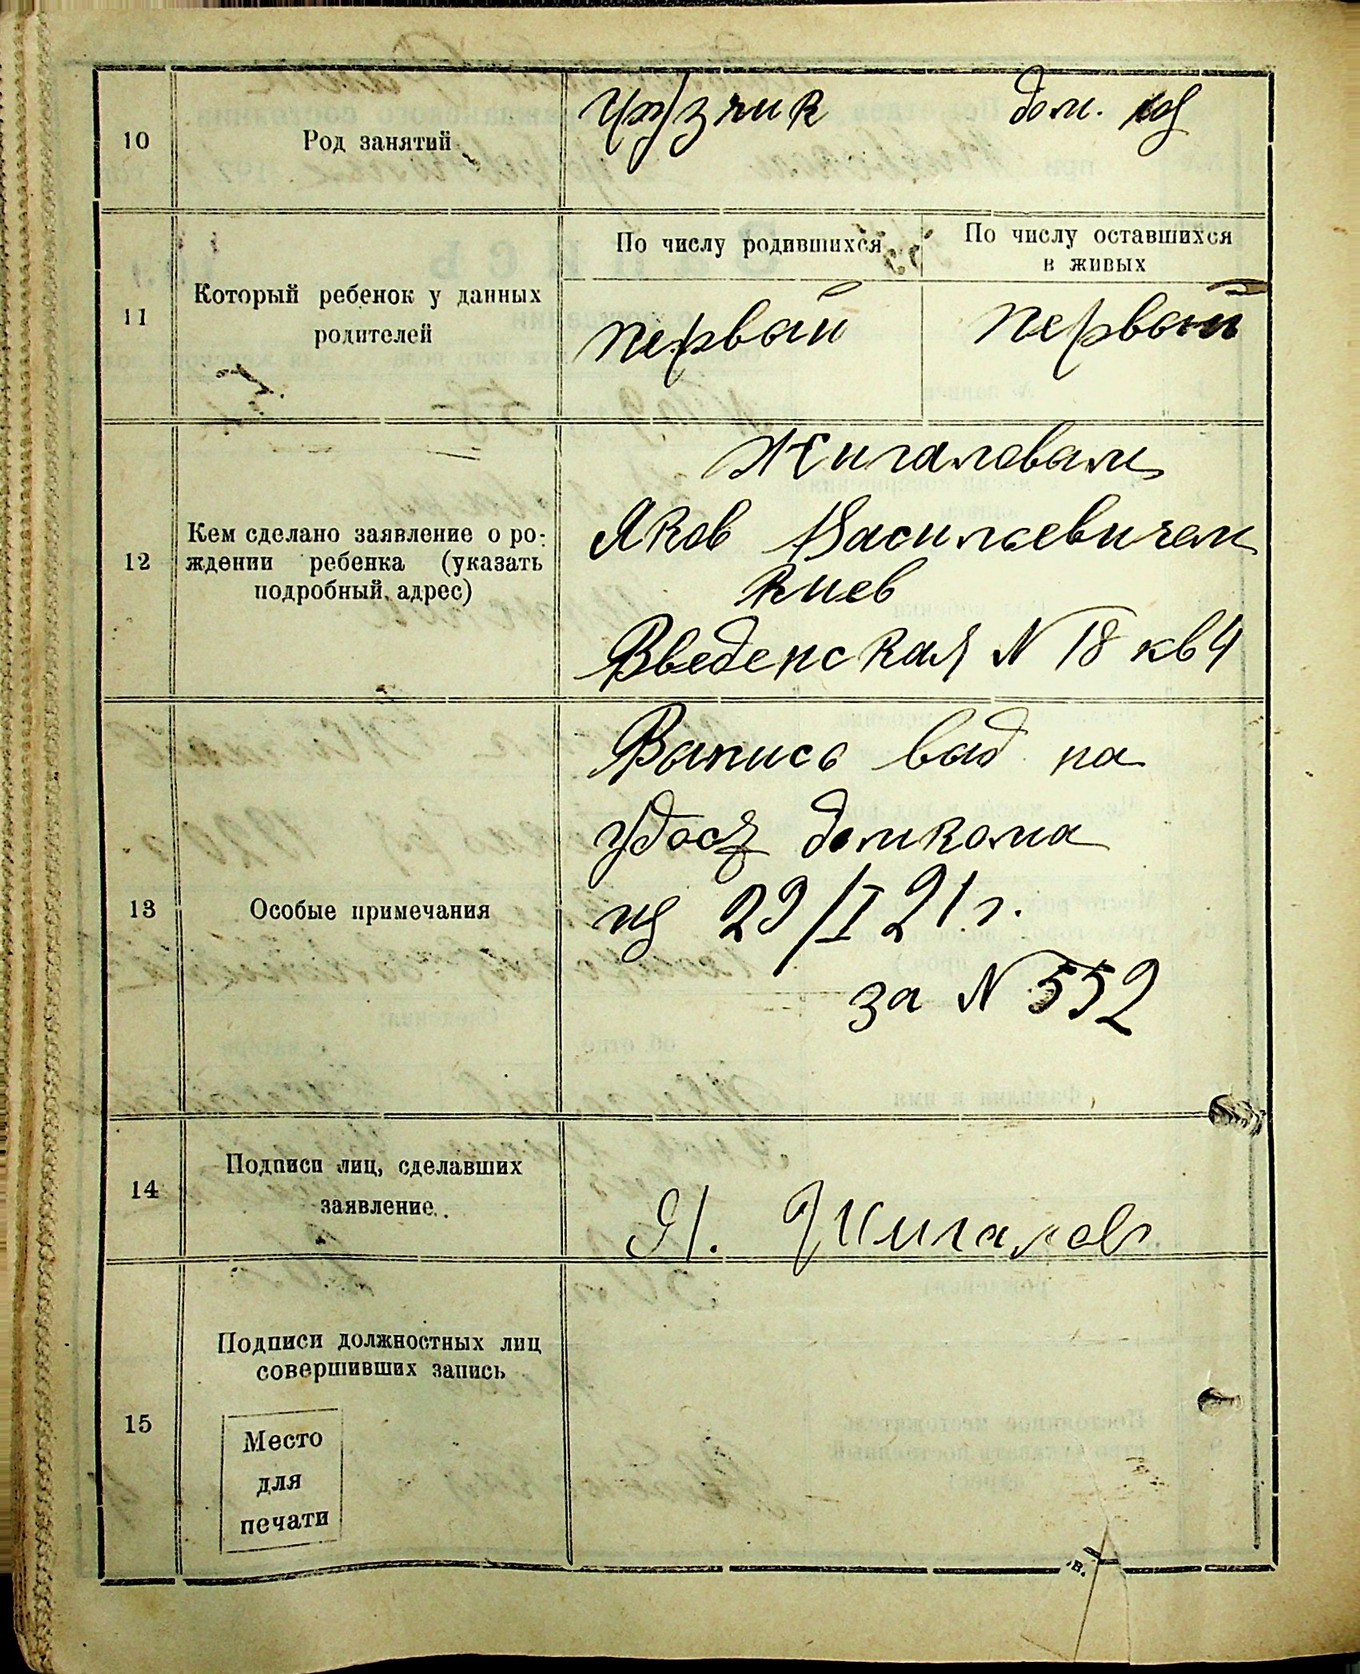 10
Род занятий
грузчик дом. хоз
11
Который ребенок у данных
родителей
По числу родившихся
По числу оставшихся
в живых
первый
первый
12
Кем сделано заявление о ро-
ждении ребенка (указать
подробный адрес)
Жигаловым
Яков Васильевичем
Киев
Введенская N 18 кв 4
13
Особые примечания
Запись на
удост домкома
29/I 21 г.
за N 552
14
Подписи лиц, сделавших
заявление.
Я. Жигалов
15
Подписи должностных лиц
совершивших запись
Место
для
печати